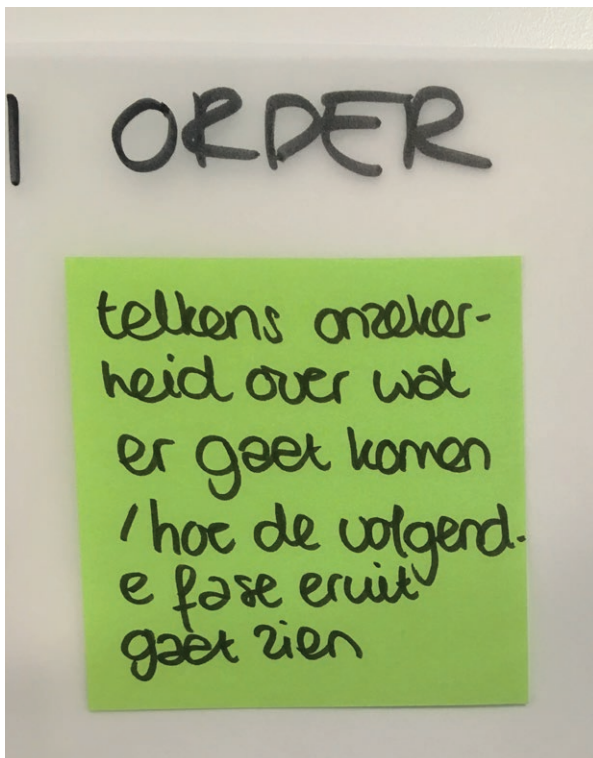 ORDER
telkens onzeker-
heid over wat
er gaat komen
/ hoe de volgend-
e fase eruit
gaat zien